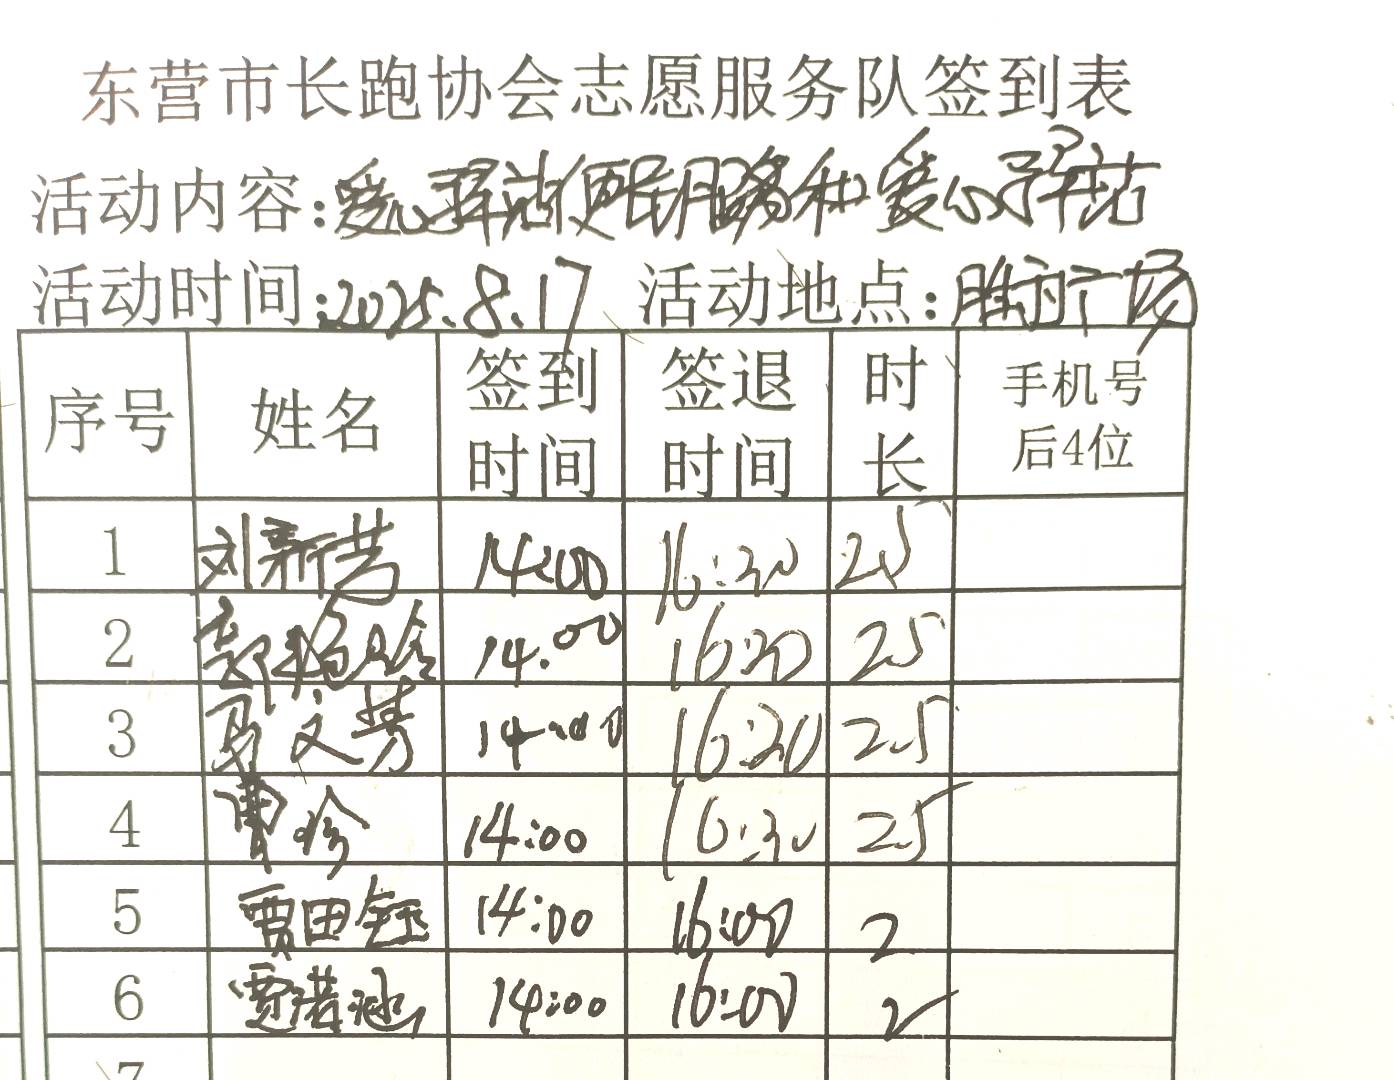 东营市长跑协会志愿服务队签到表
活动内容:爱心驿站便民服务和爱心驿站
活动时间:2025.8.17 活动地点:胜利广场
序号 姓名 签到时间 签退时间 时长 手机号后4位
1 刘新芳 14:00 16:30 2.5
2 14:00 16:30 2.5
3 马文芳 14:00 16:30 2.5
4 曹珍 14:00 16:30 2.5
5 贾田钰 14:00 16:00 2
6 贾诺涵 14:00 16:00 2
7